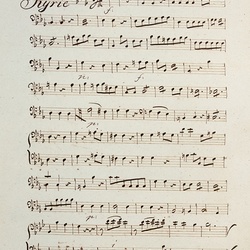 Kyrie
p.
f.
p.